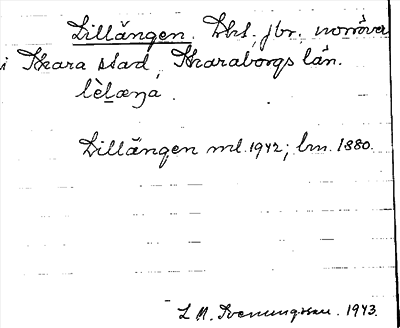 Lillängen. Lht, jbr, norröver
i Skara stad, Skaraborgs län.
lèlæŋa.
Lillängen ml. 1942; lm. 1880.
L. M. Svenungsson. 1943.